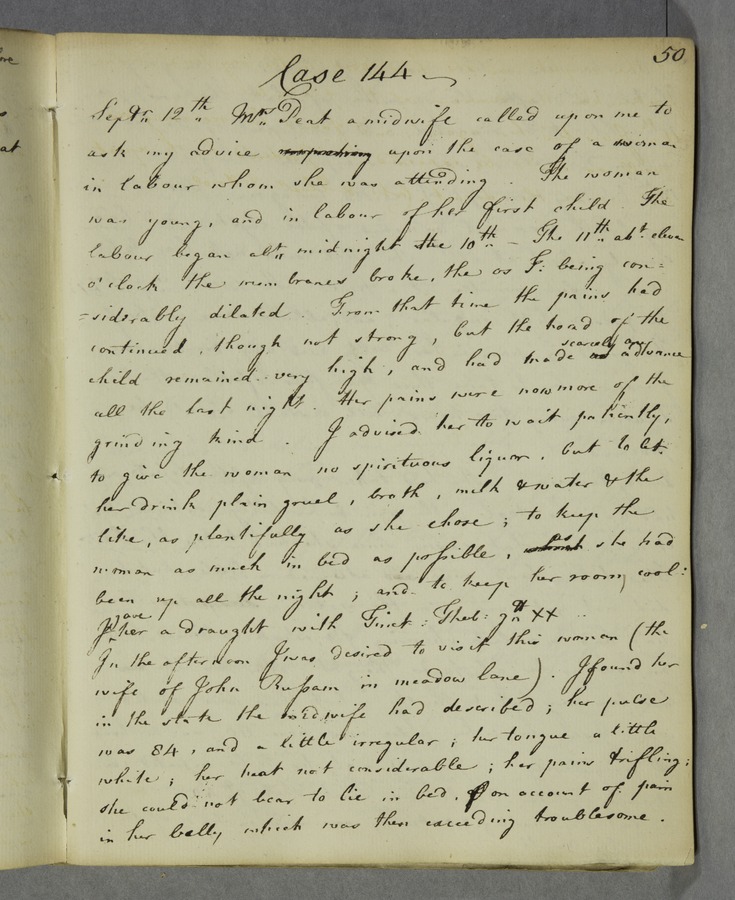 50
Case 144
Septr. 12th Mrs. Peat a midwife called upon me to
ask my advice upon the case of a woman
in labour whom she was attending. The woman
was young, and in labour of her first child. The
labour began abt. midnight the 10th - The 11th abt. eleven
o'clock the membranes broke, the os I: being con=
=siderably dilated. From that time the pains had
continued, though not strong, but the head of the
child remained very high, and had made scarcely any advance
all the last night. Her pains were now more of the
grinding kind. I advised her to wait patiently,
to give the woman no spirituous liquor, but to let
her drink plain gruel, broth, milk & water & the
like, as plentifully as she chose; to keep the
woman as much in bed as possible, as she had
been up all the night; and to keep her room cool:
I gave her a draught with Tinct: Theb: gtt XX
In the afternoon I was desired to visit this woman (the
wife of John Russam in meadow lane). I found her
in the state the midwife had described; her pulse
was 84, and a little irregular; her tongue a little
white; her heat not considerable; her pains trifling;
she could not bear to lie in bed, on account of pain
in her belly which was then exceeding troublesome.